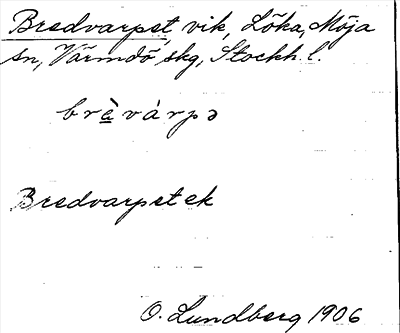 Bredvarpet vik, Löka, Möja
sn, Värmdö skg, Stockh. l.
brèvárpə
Bredvarpet ek
O. Lundberg 1906